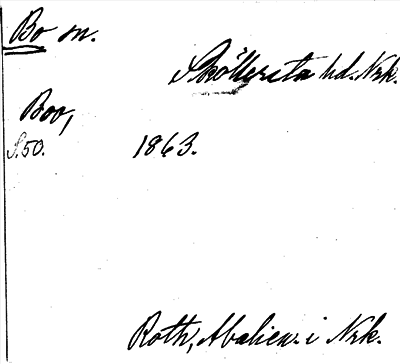 Bo sn.
Sköllersta hd. Nrk.
Boo,
S.50. 1863.
Roth, Abalien. i Nrk.